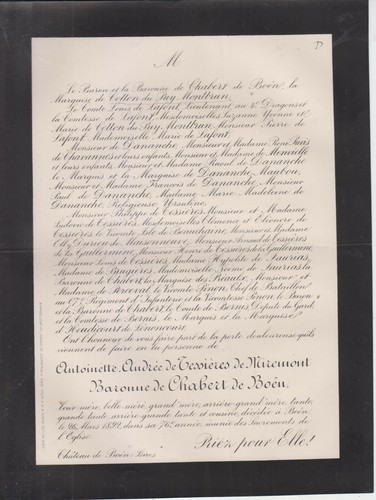 M
Le Baron et la Baronne de Chabert de Boën, la
Marquise de Cotton du Puy Montbrun,
Le Comte Louis de Lafont, Lieutenant au 4e Dragons et
la Comtesse de Lafont, Mesdemoiselles Suzanne Yvonne et
Marie de Cotton du Puy Montbrun, Monsieur Pierre de
Lafont, Mademoiselle Marie de Lafont,
Monsieur de Dananche, Monsieur et Madame René
de Charannes et leurs enfants, Monsieur et Madame de Menville
et leurs enfants, Monsieur et Madame Raoul de Dananche,
le Marquis et la Marquise de Dananche Maubou,
Monsieur et Madame François de Dananche, Monsieur
Paul de Dananche, Madame Marie Madeleine de
Dananche, Religieuse Ursuline,
Monsieur Philippe de Tessières, Monsieur et Madame
de Tessières, Mesdemoiselles Clémence et Eléonore de
Tessières, la Vicomte Isle de Beauchaine, Monsieur et Madame
Durieu de Maisonneuve, Monsieur Armand de Tessières
de la Guillermine, Monsieur Henri de Tessières de la Guillermine,
Monsieur Louis de Tessières, Madame Hippolyte de Faurias,
Madame de Bugières, Mademoiselle Noémie de Faurias, la
Baronne de Chabert, la Marquise des Réaulx, Monsieur et
Madame de le Vicomte Pinon, Chef de Bataillon
au 67e Régiment d'Infanterie et la Vicomtesse Pinon, le Baron
et la Baronne de Chabert, le Comte de Bernis, Député du Gard,
et la Comtesse de Bernis, le Marquis et la Marquise
d'Heudicourt de Lénoncourt,
Ont l'honneur de vous faire part de la perte douloureuse qu'ils
viennent de faire en la personne de
Antoinette, Andrée de Tessières de Miremont
Baronne de Chabert de Boën,
Leur mère, belle-mère, grand'mère, arrière-grand'mère, tante,
grande tante, arrière-grande-tante et cousine, décédée à Boën,
le 26 Mars 1892, dans sa 76e année, munie des Sacrements de
l'Eglise.
Priez pour Elle!
Château de Boën, Loire